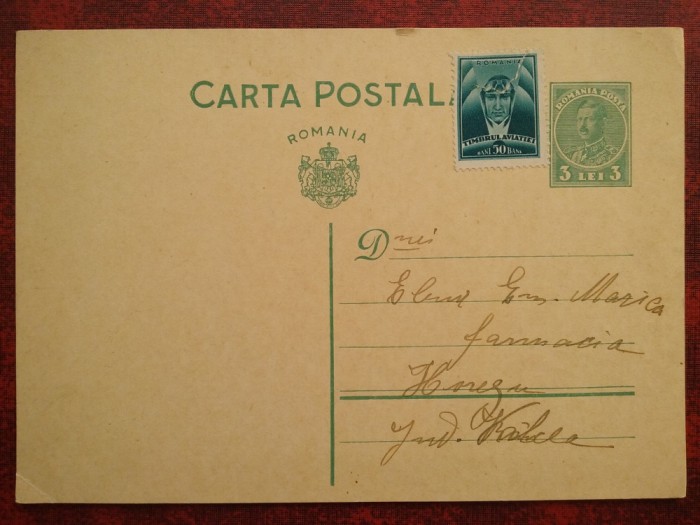 CARTA POSTALĂ
ROMANIA
ROMANIA
TIMBRUL AVIAȚIEI
50 BANI
ROMANIA POSTA
3 LEI 3
Dnei
Elena Em. Marica
farmacia
Horezu
Jud. Vâlcea